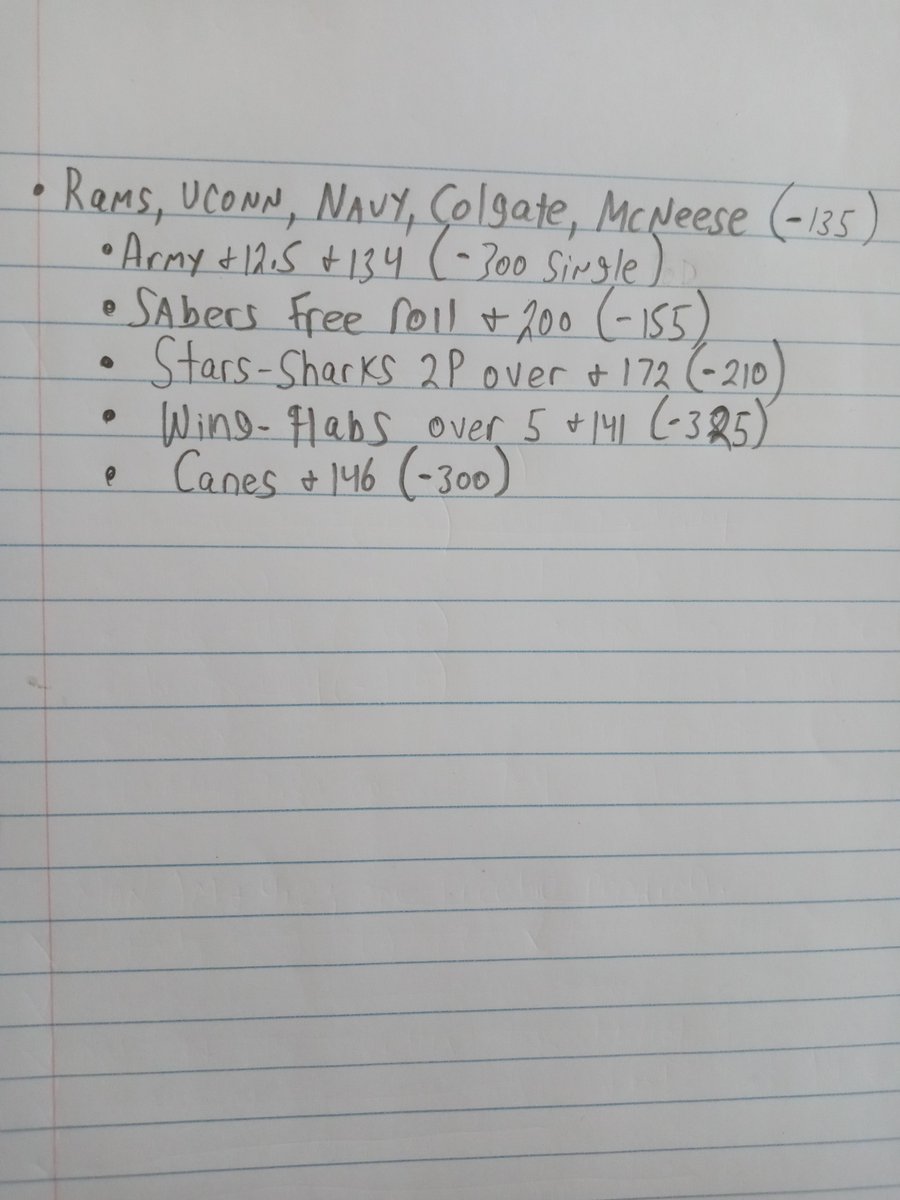 • Rams, UCONN, NAVY, Colgate, McNeese (-135)
• Army +12.5 +134 (-300 Single)
• SAbers Free roll +200 (-155)
• Stars-Sharks 2P over +172 (-210)
• Wing-Habs over 5 +141 (-325)
• Canes +146 (-300)